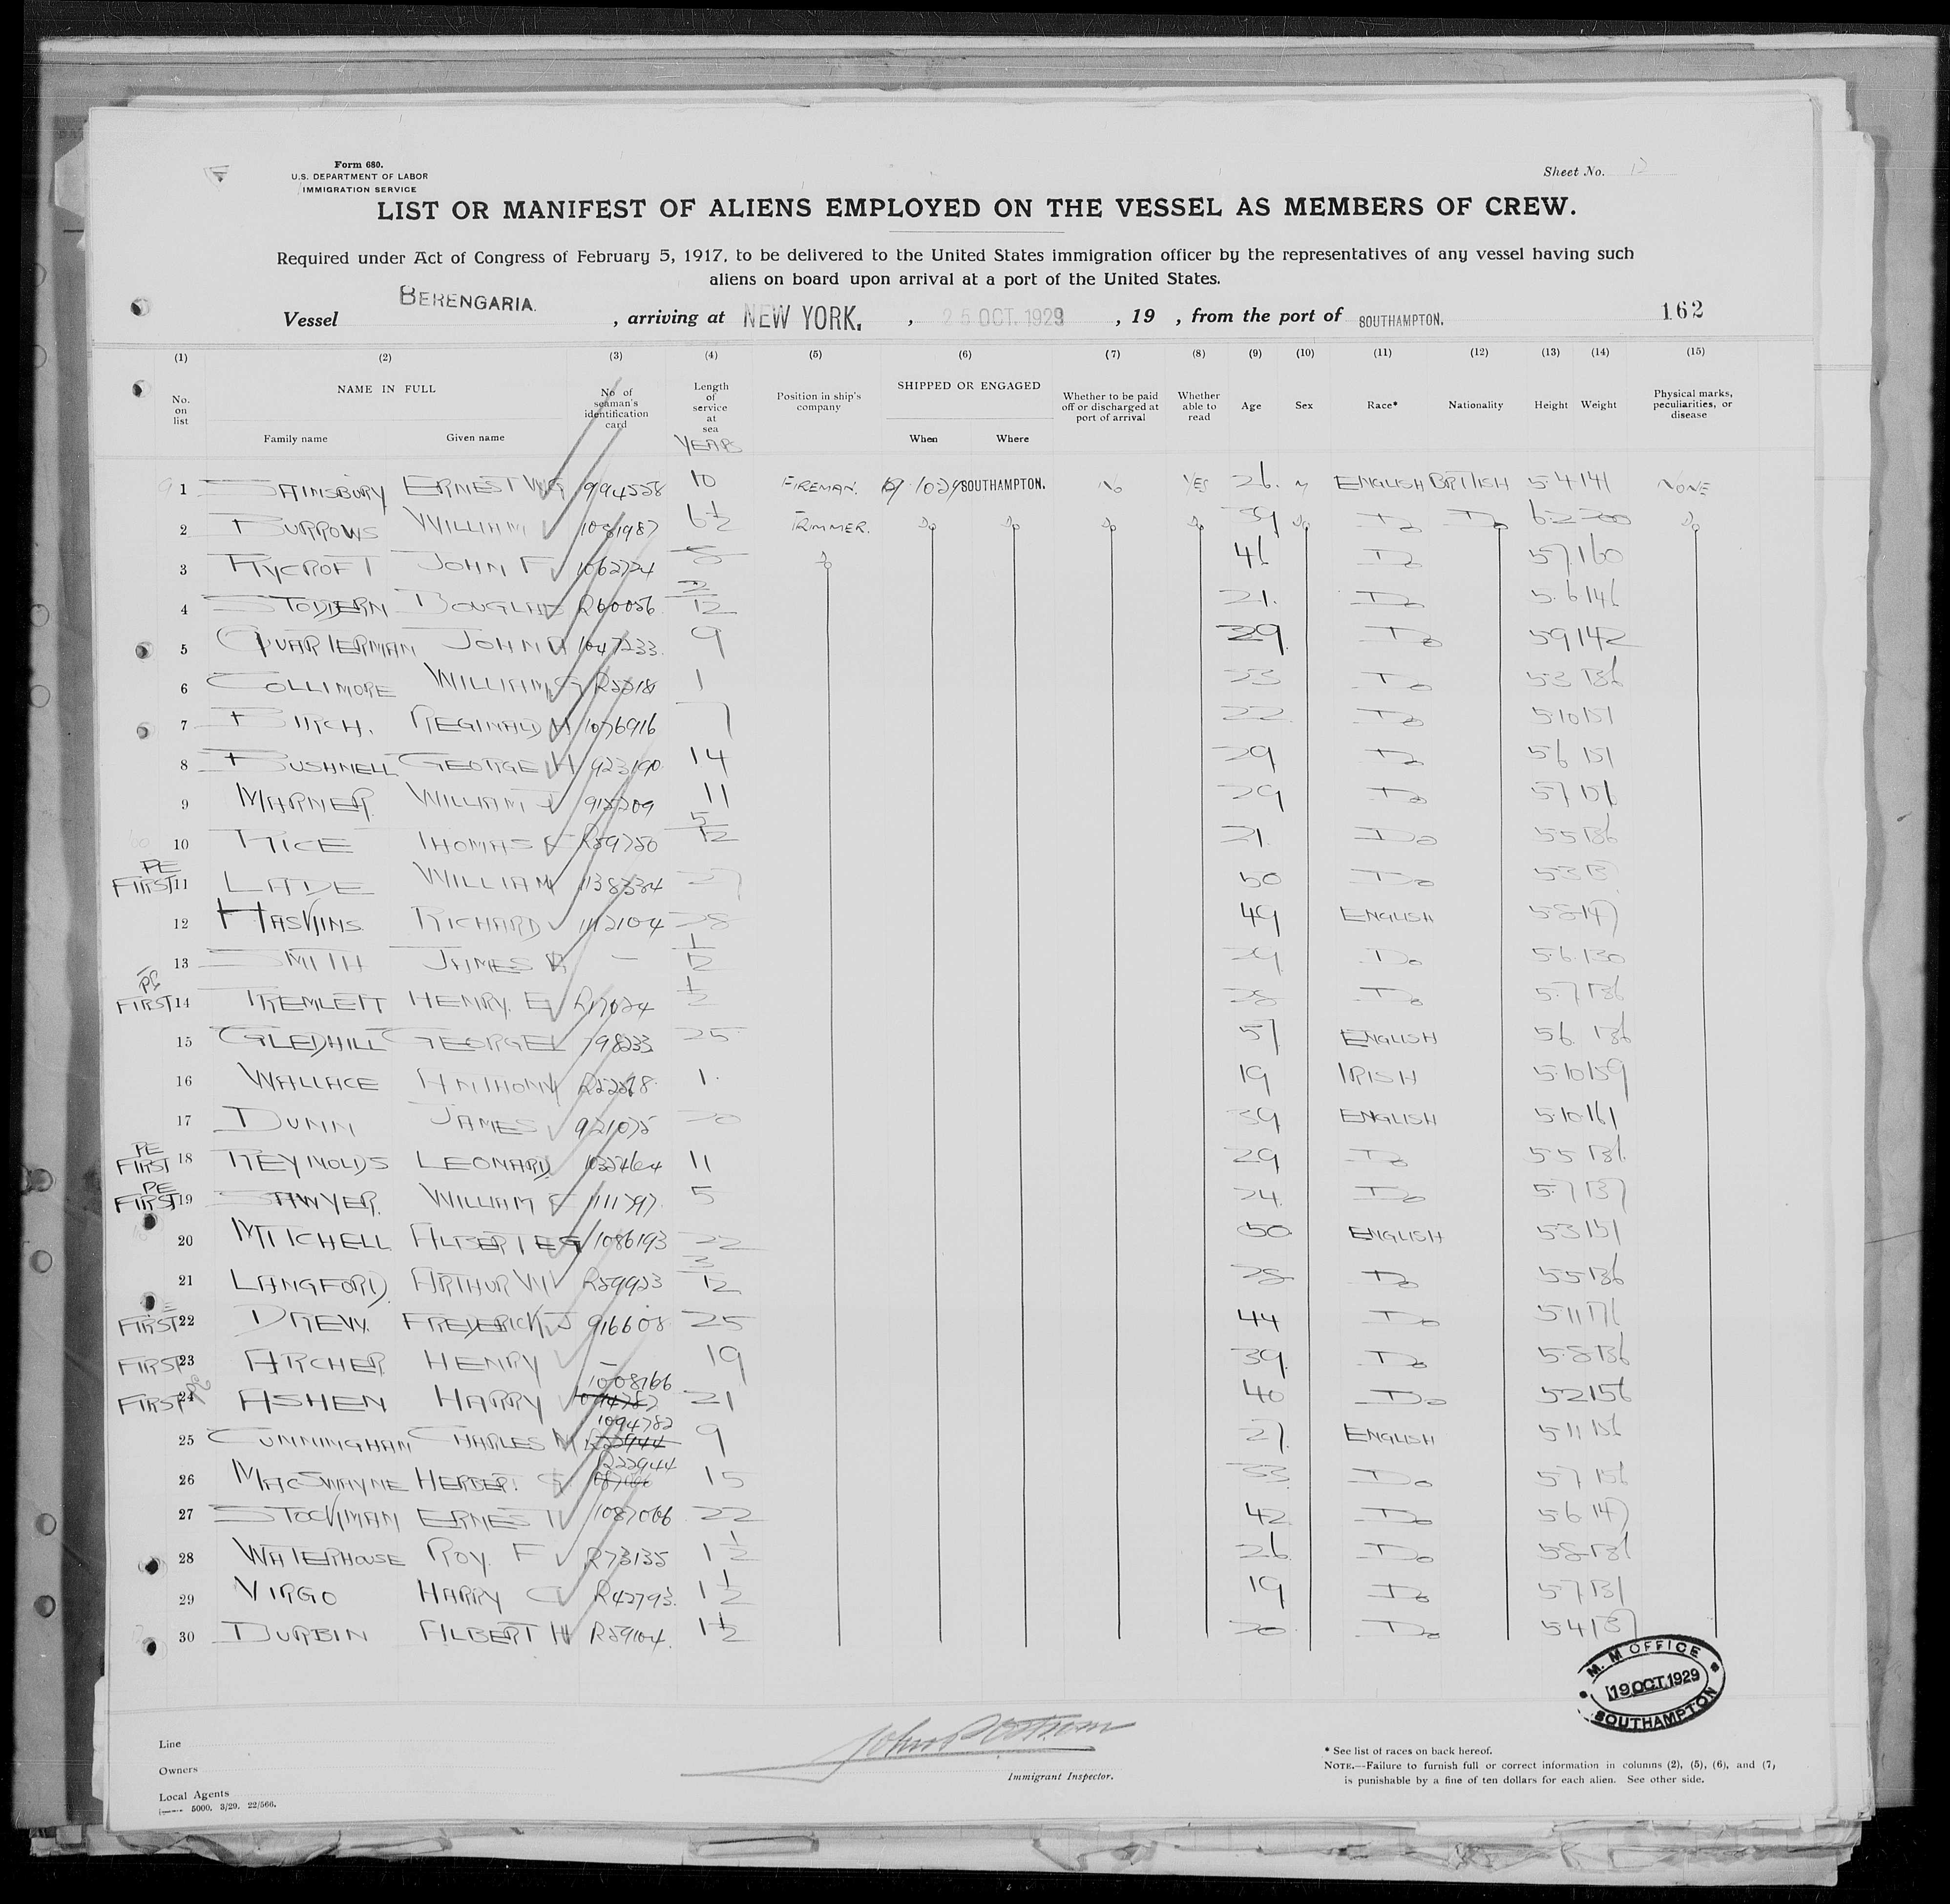 Form 680.
U.S. DEPARTMENT OF LABOR
IMMIGRATION SERVICE
Sheet No. 12
LIST OR MANIFEST OF ALIENS EMPLOYED ON THE VESSEL AS MEMBERS OF CREW.
Required under Act of Congress of February 5, 1917, to be delivered to the United States immigration officer by the representatives of any vessel having such
aliens on board upon arrival at a port of the United States.
Vessel BERENGARIA. , arriving at NEW YORK. , 25 OCT. 1929 , 19 , from the port of SOUTHAMPTON. 162
(1) (2) (3) (4) (5) (6) (7) (8) (9) (10) (11) (12) (13) (14) (15)
No. on list NAME IN FULL Family name Given name No. of seaman's identification card Length of service at sea YEARS Position in ship's company SHIPPED OR ENGAGED When Where Whether to be paid off or discharged at port of arrival Whether able to read Age Sex Race* Nationality Height Weight Physical marks, peculiarities, or disease
1 SAINSBURY ERNEST W G 994558 10 FIREMAN. 19.10.29 SOUTHAMPTON. NO YES 26. M ENGLISH BRITISH 5.4 141 NONE
2 BURROWS WILLIAM 1081987 6 1/2 TRIMMER. Do Do Do Do 39 Do Do Do 6.2 200 Do
3 RYCROFT JOHN F 1062724 5 Do 46 Do 5.7 160
4 DOUGLAS R60056 2/12 21. Do 5.6 146
5 QUARTERMAN JOHN H 1047233 9 29. Do 5.9 142
6 COLLIMORE WILLIAM G 1 33 Do 5.3 136
7 BIRCH. REGINALD H 1076916 7 22 Do 5.10 151
8 BUSHNELL GEORGE H 923190 14 29 Do 5.6 151
9 MARNER WILLIAM J 915209 11 29 Do 5.7
10 RICE THOMAS R59750 5/12 21. Do 5.5 136
PE
FIRST 11 LADE WILLIAM 1138334 27 50 Do 5.3
12 HASKINS RICHARD 1112104 28 49 ENGLISH 5.8 147
13 SMITH JAMES R — 1/12 29 Do 5.6 130
PE
FIRST 14 TREMLETT HENRY. E R17024 1/2 28 Do 5.7 136
15 GLEDHILL GEORGE 798233 25 57 ENGLISH 5.6. 136
16 WALLACE ANTHONY 1. 19 IRISH 5.10 159
17 DUNN JAMES 921075 20 39 ENGLISH 5.10 161
PE
FIRST 18 REYNOLDS LEONARD 1032464 11 29 Do 5.5 136
PE
FIRST 19 SAWYER. WILLIAM 1111797. 5 24. Do 5.7 137
20 MITCHELL ALBERT E G 1086193 22 50 ENGLISH 5.3 151
21 LANGFORD ARTHUR W R59923 3/12 28 Do 5.5 136
FIRST 22 DREW. FREDERICK J 916608 25 44 Do 5.11 171
FIRST 23 ARCHER HENRY — 19 39. Do 5.8 136
1008166
FIRST 24 ASHEN HARRY 1094782 21 40 Do 5.2 156
1094782
25 CUNNINGHAM CHARLES M R22944 9 27. ENGLISH 5.11 156
R22944
26 MACSWAYNE HERBERT. G. 15 33 Do 5.7 156
27 STOCKMAN ERNEST 1087066 22 42 Do 5.6 147
28 WATERHOUSE ROY. F R73135 1 1/2 26 Do 5.8 136
29 VIRGO HARRY C R42793. 1 1/2 19 Do 5.7 131
30 DURBIN ALBERT H R59104. 1 1/2 20 Do 5.4 137
M. M OFFICE
19 OCT. 1929
SOUTHAMPTON
Line
Owners
Local Agents
5000. 3/29. 22/566.
Immigrant Inspector.
* See list of races on back hereof.
NOTE.—Failure to furnish full or correct information in columns (2), (5), (6), and (7)
is punishable by a fine of ten dollars for each alien. See other side.